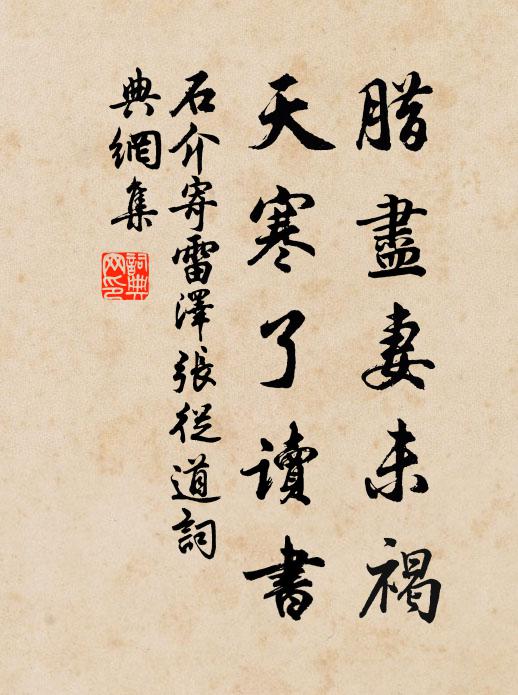 腊盡妻未褐
天寒了讀書
石介寄雷澤張從道詞
典網集
詞典
网印